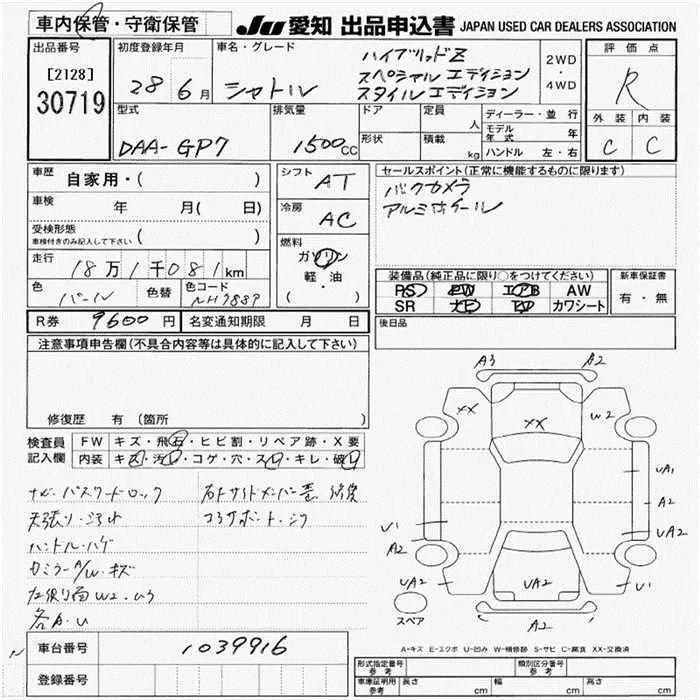 車内保管・守衛保管
JU 愛知 出品申込書 JAPAN USED CAR DEALERS ASSOCIATION
出品番号
[2128]
30719
初度登録年月
28 6月
車名・グレード
シャトル
ハイブリッドZ
スペシャル エディション
スタイル エディション
2WD
・
4WD
評価点
R
外装 内装
C C
型式
DAA-GP7
排気量
1500cc
ドア
形状
定員 人
積載 kg
ディーラー・並行
モデル年式 年
ハンドル 左・右
車歴 自家用・( )
車検 年 月(日)
受検形態
車検付きのみ記入して下さい ( )
走行 18万1千081km
色 パール 色替 色コード NH788P
シフト AT
冷房 AC
燃料
ガソリン
軽・油
( )
セールスポイント(正常に機能するものに限ります)
バックカメラ
アルミホイール
装備品(純正品に限り○をつけてください)
PS PW エアB AW
SR ナビ TV カワシート
新車保証書
有・無
R券 9600円 名変通知期限 月 日
後日品
注意事項申告欄(不具合内容等は具体的に記入して下さい)
修復歴 有(箇所 )
検査員記入欄
FW キズ・飛石・ヒビ割・リペア跡・X要
内装 キズ・汚レ・コゲ・穴・スレ・キレ・破レ
ナビ・パスワードロック
天張り・ヨゴレ
ハンドル・ハゲ
右サイドメンバー
コアサポート
A/W・キズ
W2
各A・U
A3 A2
XX XX W2
UA1
A2
U1
A2
UA2 UA2 U1
A2
スペア
A-キズ E-エクボ U-凹み W-補修跡 S-サビ C-腐食 XX-交換済
車台番号 1039916
登録番号
形式指定番号 参考
類別区分番号 参考
車庫証明用 参考 長さ cm 幅 cm 高さ cm